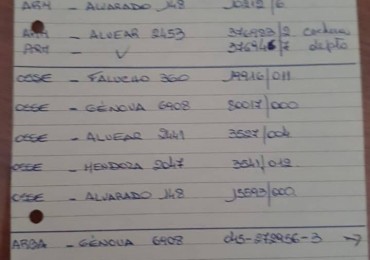 ARM - ALVARADO 148 10212/6
ARM - ALVEAR 2453 376923/2 cochera
ARM - ✓ 376946/7 depto
OSSE - FALUCHO 360 19916/011
OSSE - GÉNOVA 6908 80017/000
OSSE - ALVEAR 2441 3527/004
OSSE - MENDOZA 2047 3541/012
OSSE - ALVARADO 148 15593/000
ARBA - GÉNOVA 6908 045-272956-3 →